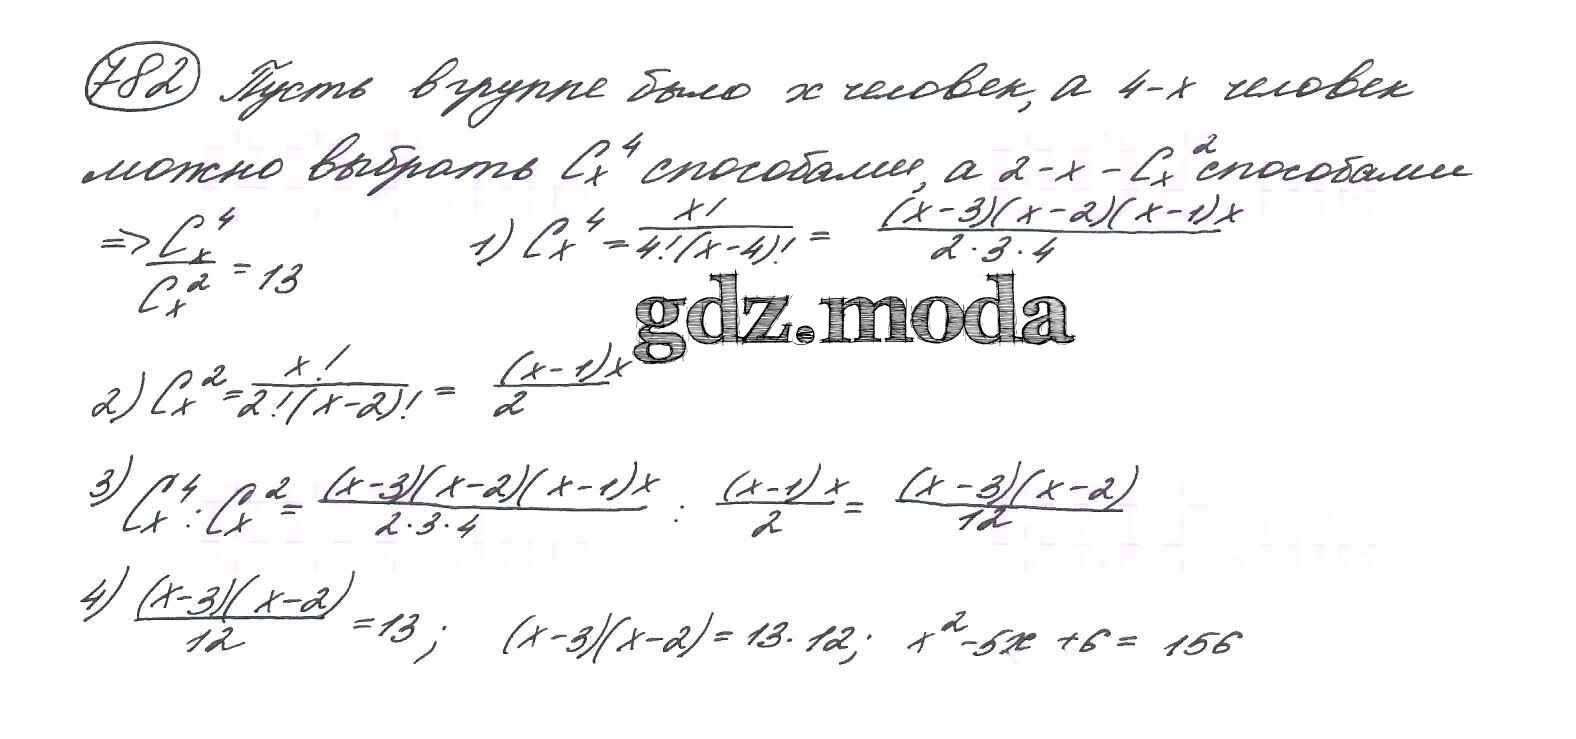 782 Пусть в группе было x человек, а 4-x человек
можно выбрать C_x^4 способами, а 2-x - C_x^2 способами
=> C_x^4 / C_x^2 = 13 1) C_x^4 = x! / 4!(x-4)! = (x-3)(x-2)(x-1)x / 2·3·4
gdz.moda
2) C_x^2 = x! / 2!(x-2)! = (x-1)x / 2
3) C_x^4 : C_x^2 = (x-3)(x-2)(x-1)x / 2·3·4 : (x-1)x / 2 = (x-3)(x-2) / 12
4) (x-3)(x-2) / 12 = 13; (x-3)(x-2) = 13·12; x^2-5x+6 = 156